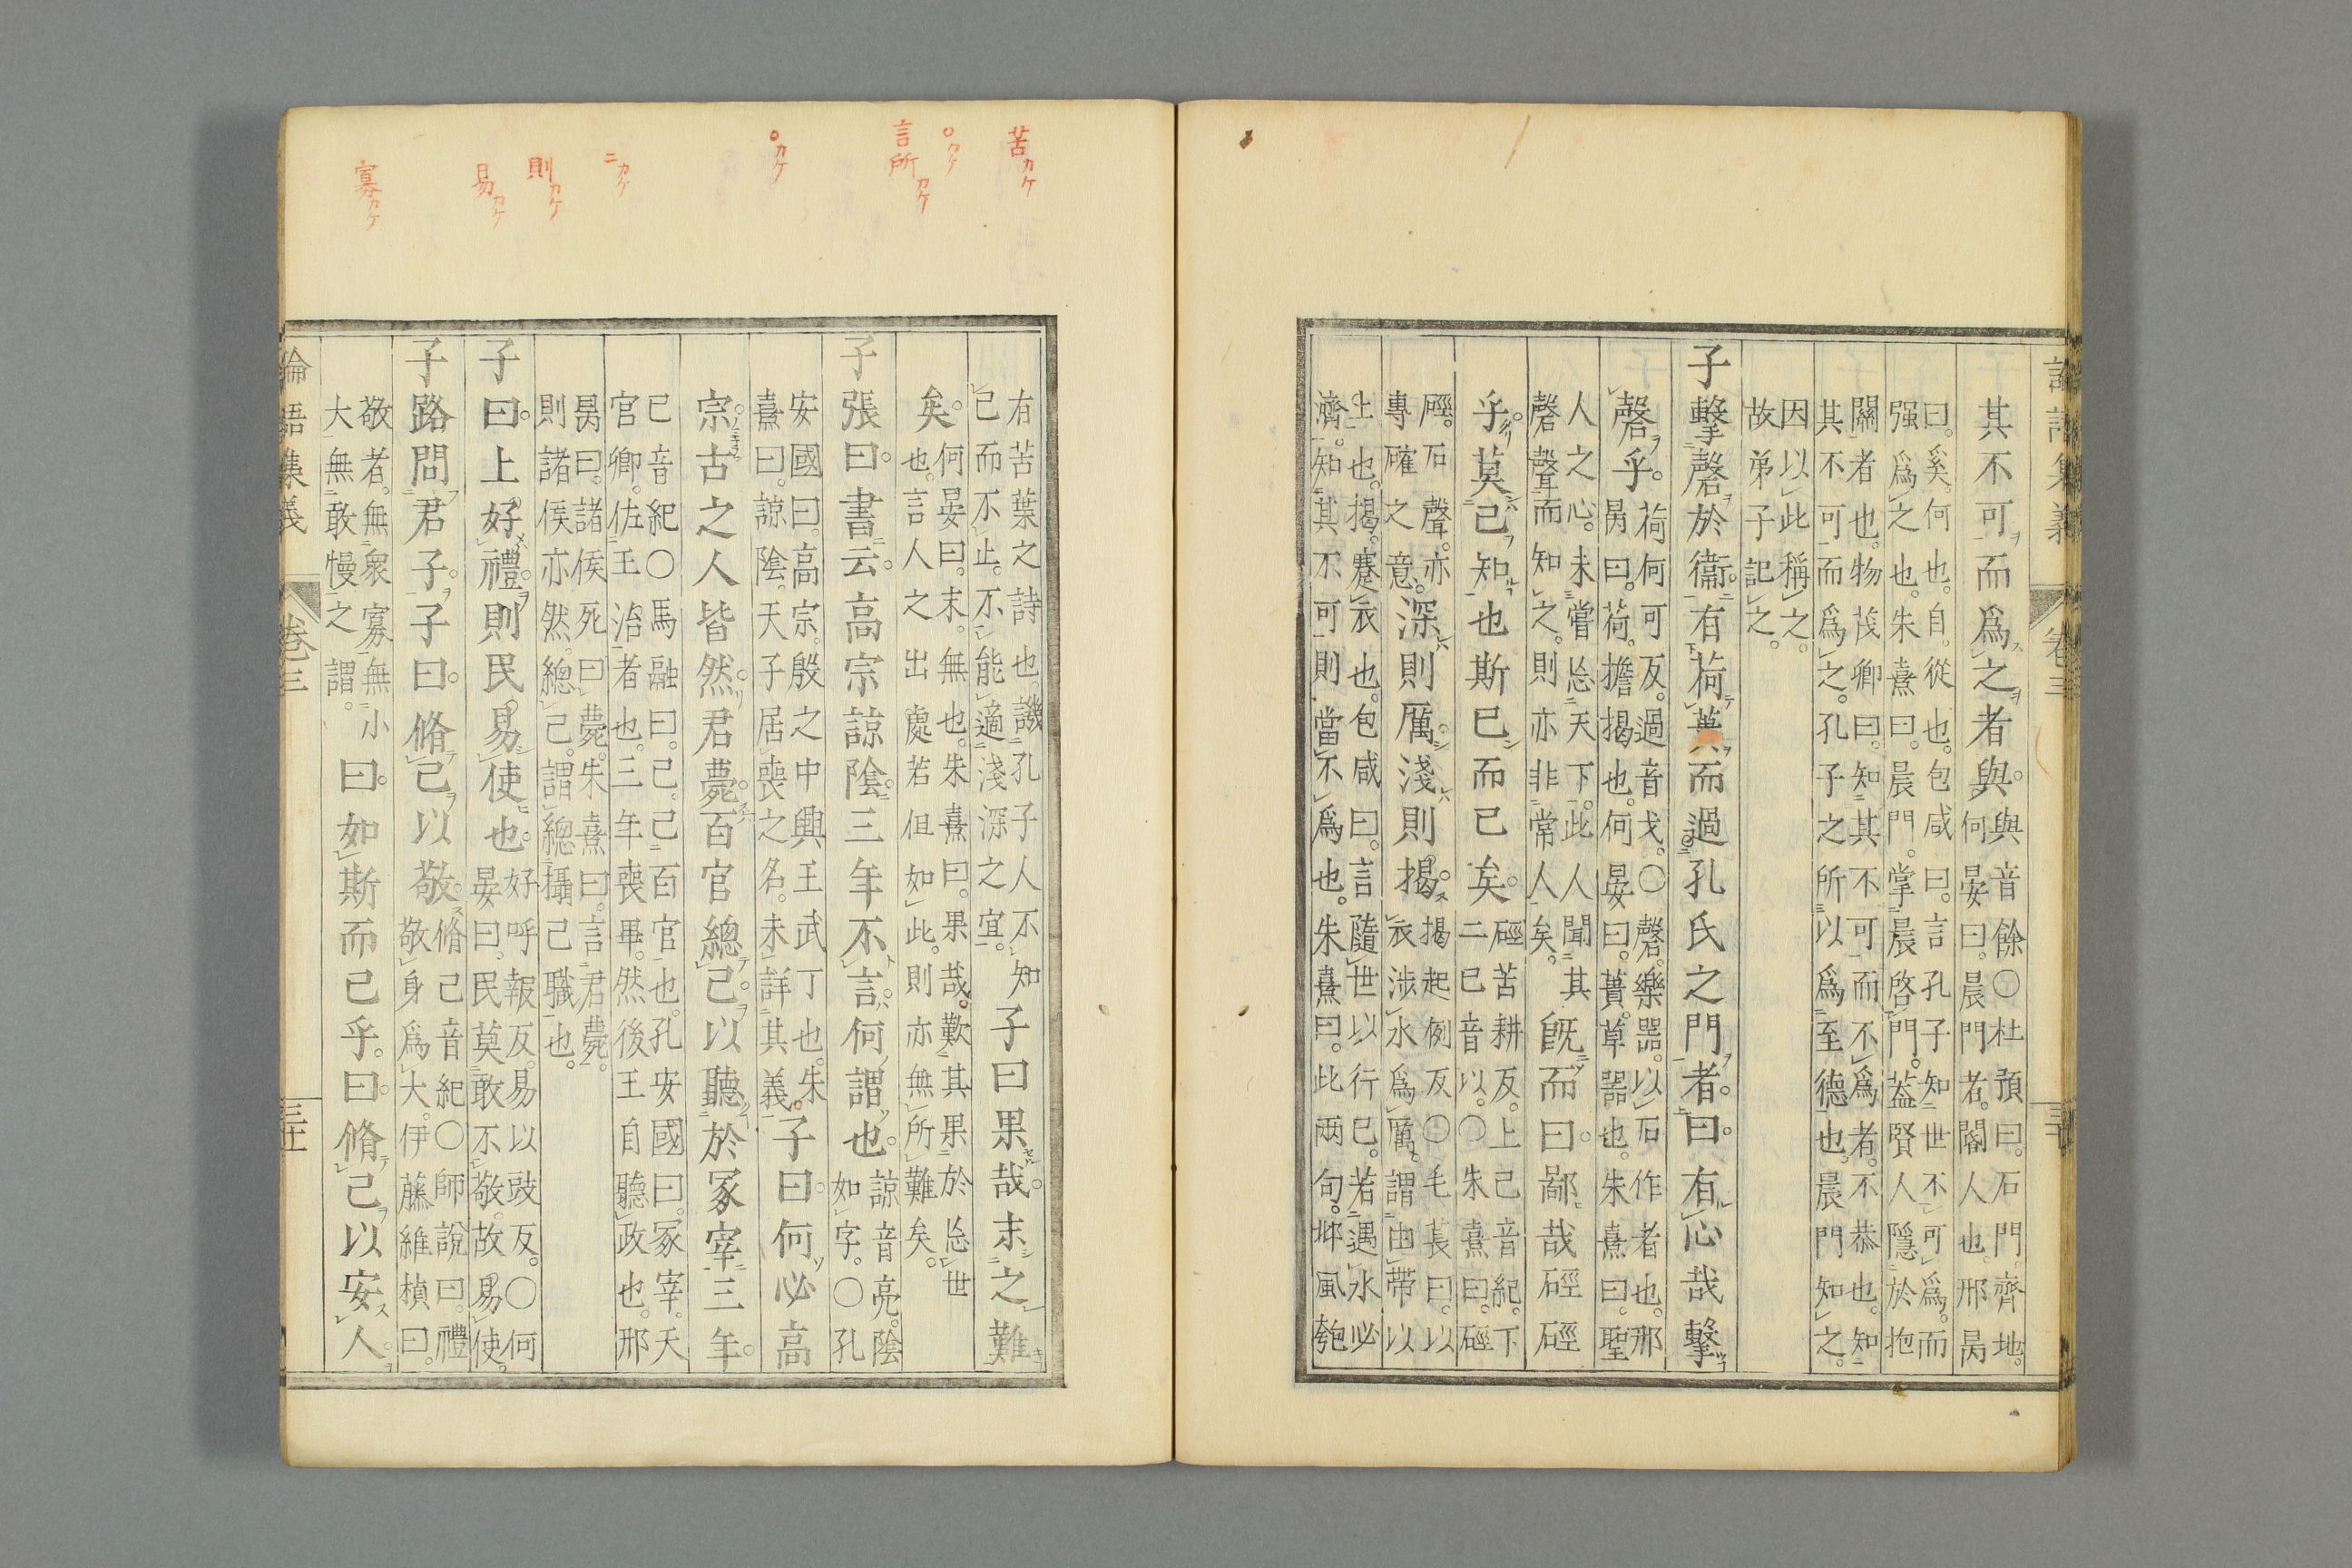 其不可而爲之者與。與音餘〇杜預曰。石門。齊地。何晏曰。晨門者。閽人也。邢昺
曰。奚。何也。自。從也。包咸曰。言孔子知世不可爲。而强爲之也。朱熹曰。晨門。掌晨啓門。蓋賢人隱於抱
關者也。物茂卿曰。知其不可而不爲者。不恭也。知其不可而爲之。孔子之所以爲至德也。晨門知之。
因以此稱之。故弟子記之。
子擊磬於衞。有荷蕢而過孔氏之門者。曰。有心哉擊
磬乎。荷何可反。過音戈。〇磬。樂器。以石作者也。邢昺曰。荷。擔揭也。何晏曰。蕢。草器也。朱熹曰。聖
人之心。未嘗忘天下。此人聞其磬聲而知之。則亦非常人矣。旣而曰。鄙哉硜硜
乎。莫己知也斯已而已矣。硜苦耕反。上己音紀。下二已音以。〇朱熹曰。硜
硜。石聲。亦專確之意。深則厲。淺則揭。揭起例反〇毛萇曰。以衣涉水爲厲。謂由帶以
上也。揭。褰衣也。包咸曰。言隨世以行己。若遇水必濟。知其不可則當不爲也。朱熹曰。此兩句。邶風匏
有苦葉之詩也。譏孔子人不知己而不止。不能適淺深之宜。子曰果哉。末之難
矣。何晏曰。末。無也。朱熹曰。果哉。歎其果於忘世也。言人之出處若但如此。則亦無所難矣。
子張曰。書云。高宗諒陰。三年不言。何謂也。諒音亮。陰如字。〇孔
安國曰。高宗。殷之中興王武丁也。朱熹曰。諒陰。天子居喪之名。未詳其義。子曰。何必高
宗。古之人皆然。君薨。百官總己。以聽於冢宰三年。
己音紀〇馬融曰。己。己百官也。孔安國曰。冢宰。天官卿。佐王治者也。三年喪畢。然後王自聽政也。邢
昺曰。諸侯死曰薨。朱熹曰。言君薨。則諸侯亦然。總己。謂總攝己職也。
子曰。上好禮。則民易使也。好呼報反。易以豉反。〇何晏曰。民莫敢不敬。故易使。
子路問君子。子曰。脩己以敬。脩己音紀〇師說曰。禮敬身爲大。伊藤維楨曰。
敬者。無衆寡。無小大。無敢慢之謂。曰。如斯而已乎。曰。脩己以安人。
論語集義
卷三
三十
論語集義
卷三
三十一
苦カケ
〇カケ
言所カケ
〇カケ
ニカケ
則カケ
易カケ
寡カケ